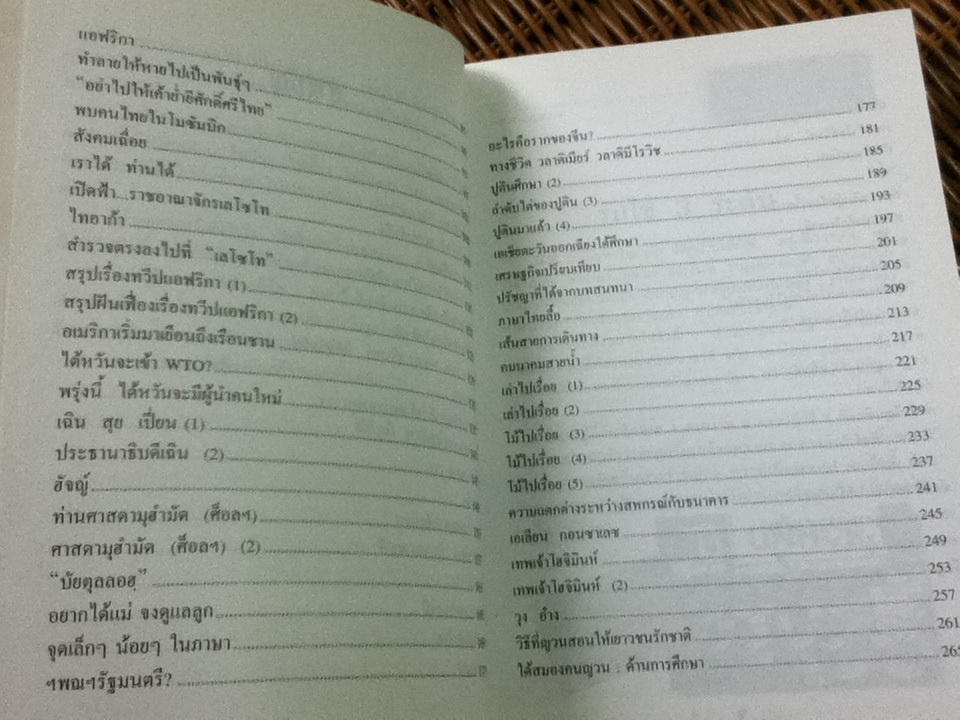 แอฟริกา
ทำลายให้หายไปเป็นพันธุ์ๆ
“อย่าไปให้เค้าย่ำยีศักดิ์ศรีไทย”
พบคนไทยในโมซัมบิก
สังคมเฉื่อย
เราได้ ท่านได้
เปิดฟ้า...ราชอาณาจักรเลโซโท
ไทอาก้า
สำรวจตรงลงไปที่ “เลโซโท”
สรุปเรื่องทวีปแอฟริกา (1)
สรุปฝันเฟื่องเรื่องทวีปแอฟริกา (2)
อเมริกาเริ่มมาเยือนถึงเรือนชาน
ไต้หวันจะเข้า WTO?
พรุ่งนี้ ไต้หวันจะมีผู้นำคนใหม่
เฉิน สุย เปี่ยน (1)
ประธานาธิบดีเฉิน (2)
ฮัจญ์
ท่านศาสดามุฮำมัด (ศ็อลฯ)
ศาสดามุฮำมัด (ศ็อลฯ) (2)
“บัยตุลลอฮฺ”
อยากได้แม่ จงดูแลลูก
จุดเล็กๆ น้อยๆ ในภาษา
ฯพณฯรัฐมนตรี?
อะไรคือรากของจีน? 177
ทางชีวิต วลาดิเมียร์ วลาดิมีโรวิช 181
ปูตินศึกษา (2) 185
ลำดับไต่ของปูติน (3) 189
ปูตินมาแล้ว (4) 193
เอเชียตะวันออกเฉียงใต้ศึกษา 197
เศรษฐกิจเปรียบเทียบ 201
ปรัชญาที่ได้จากบทสนทนา 205
ภาษาไทยลื้อ 209
เส้นสายการเดินทาง 213
คมนาคมสายน้ำ 217
เล่าไปเรื่อย (1) 221
เล่าไปเรื่อย (2) 225
โม้ไปเรื่อย (3) 229
โม้ไปเรื่อย (4) 233
โม้ไปเรื่อย (5) 237
ความแตกต่างระหว่างสหกรณ์กับธนาคาร 241
เอเลียน กอนซาเลซ 245
เทพเจ้าโฮจิมินห์ 249
เทพเจ้าโฮจิมินห์ (2) 253
วุง อ๋าง 257
วิธีที่ญวนสอนให้เยาวชนรักชาติ 261
ใต้สมองคนญวน : ด้านการศึกษา 265